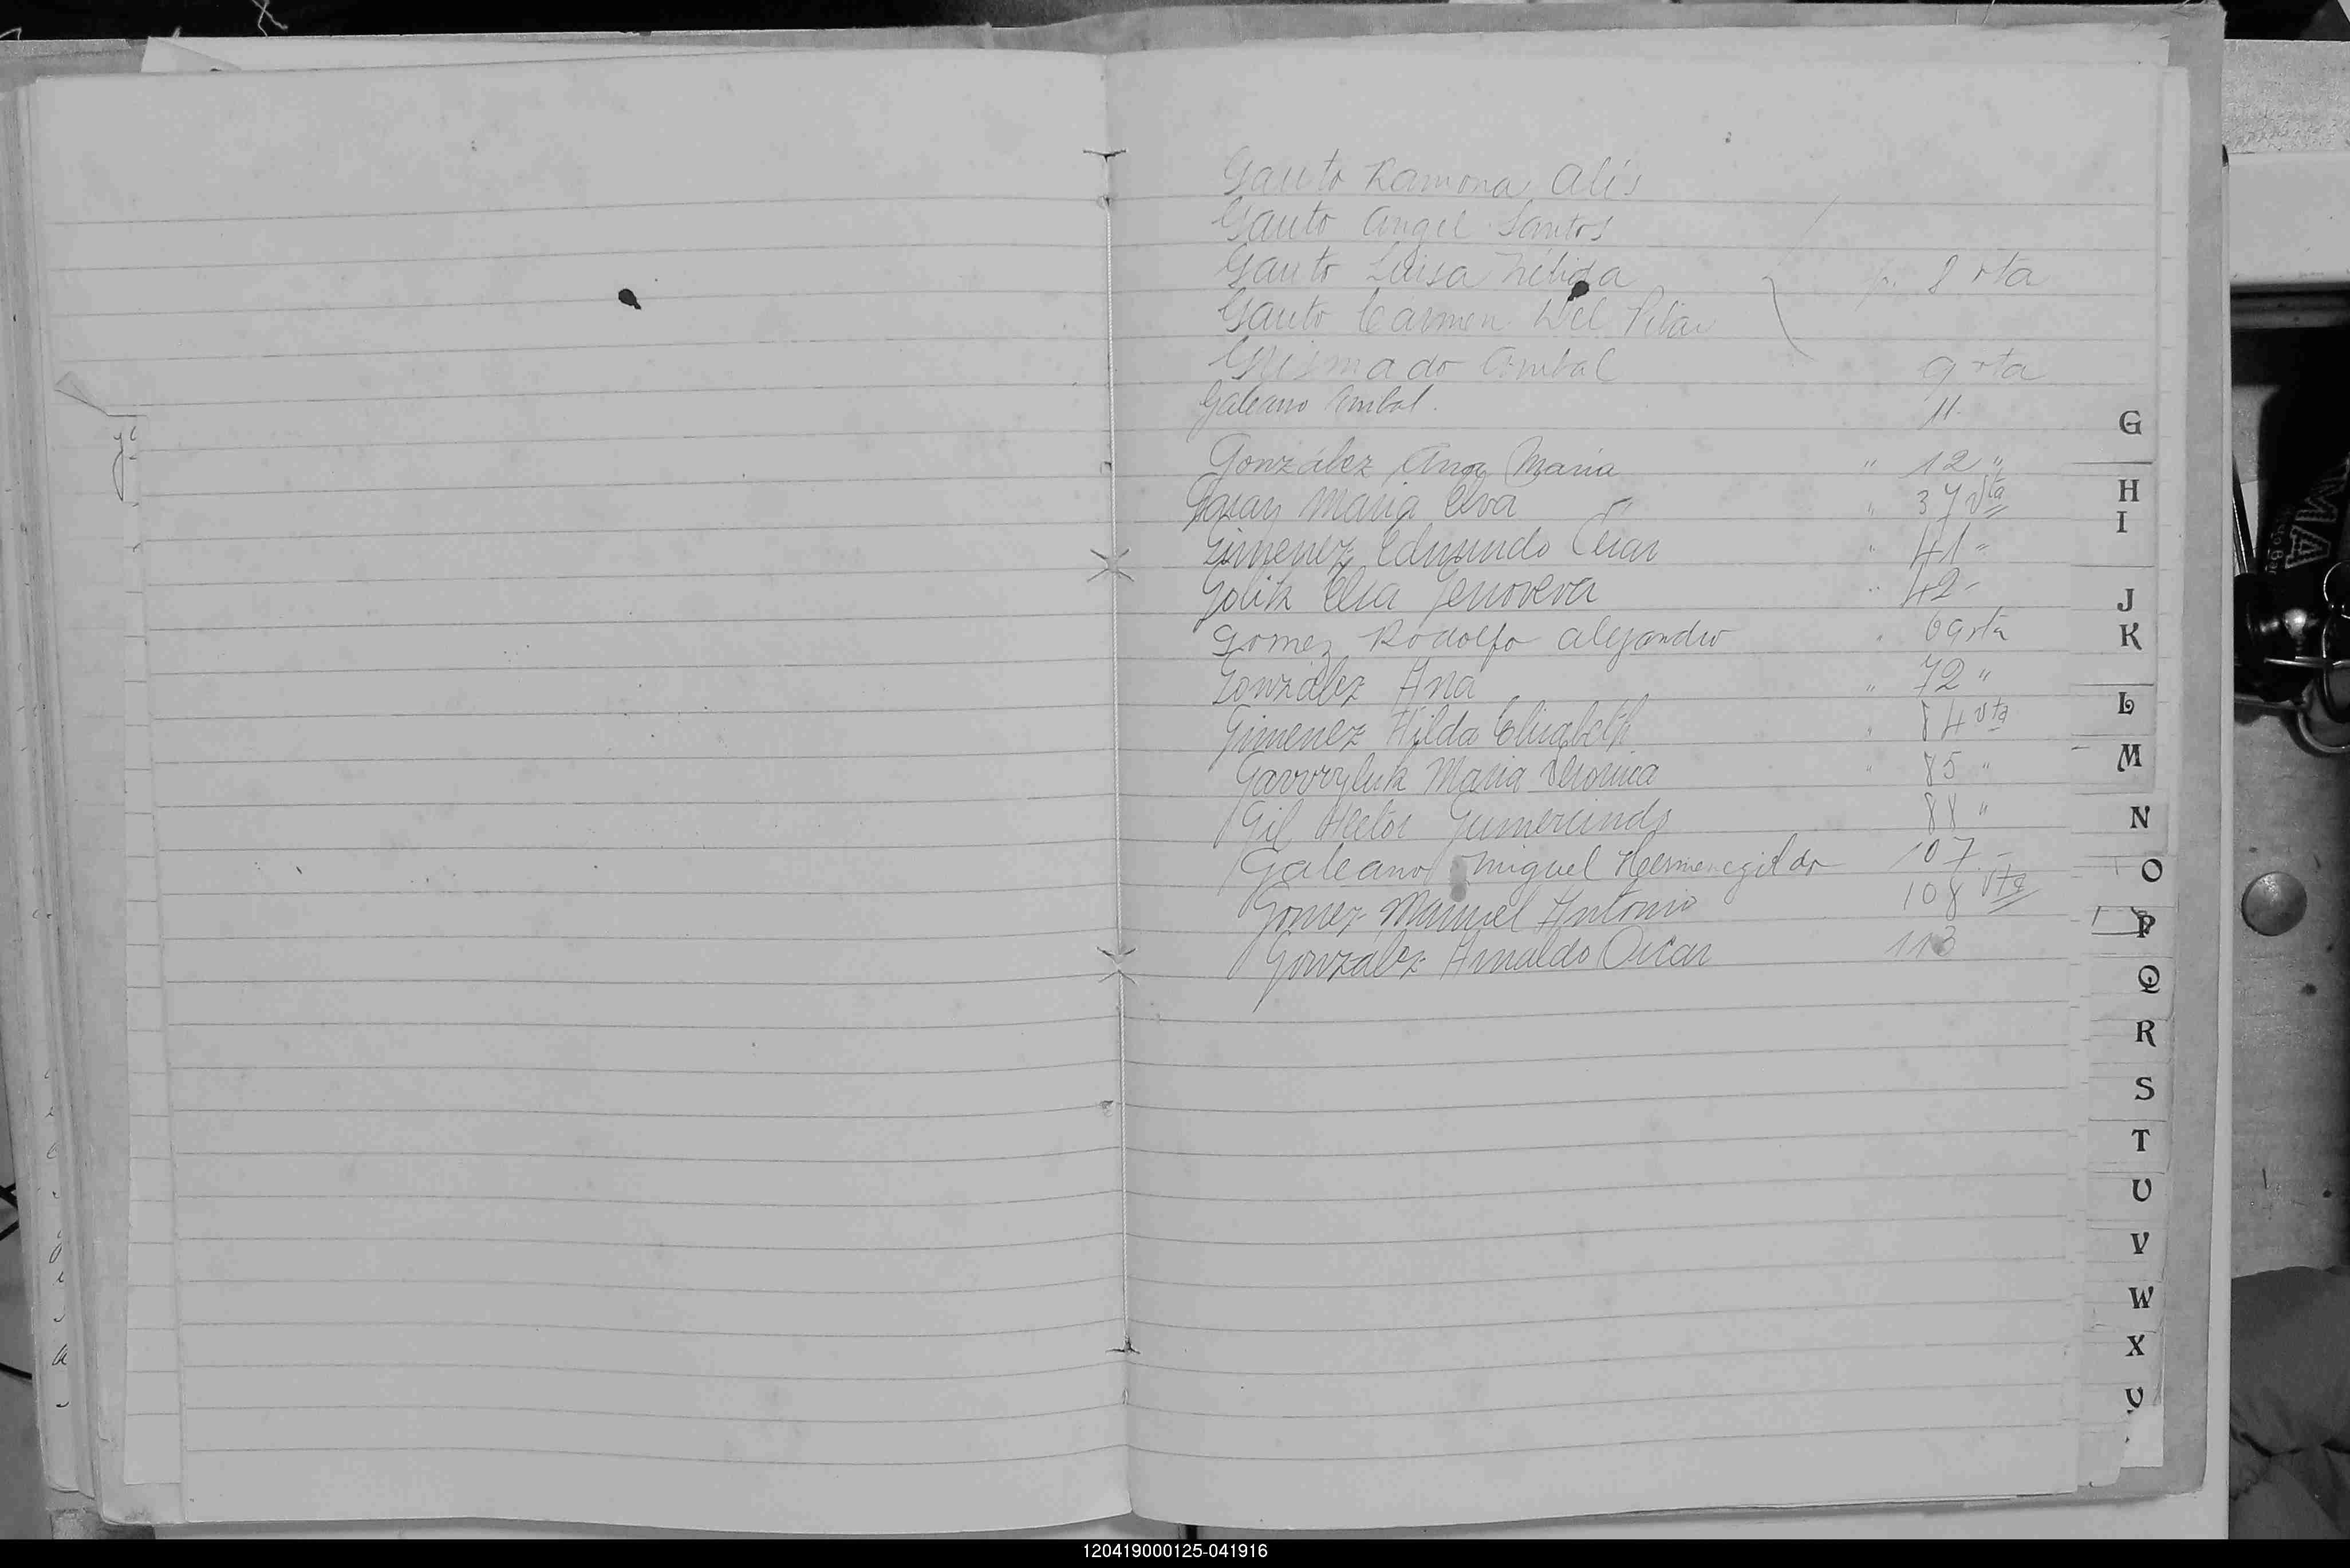 Gauto Ramona Alis
Gauto Angel Santos
Gauto Luisa Nélida p. 8 vta
Gauto Carmen Del Pilar
Grismado Anibal 9 vta
Galeano Anibal. 11.
González Ana Maria " 12 "
Garay Maria Elva " " 37 vta
Gimenez Edmundo Cesar " 41 "
Golik Elsa Genoveva " 42 "
Gomez Rodolfo Alejandro " 69 vta
González Ana " 72 "
Gimenez Hilda Elizabeth " 84 vta
Gavvryluk Maria Veronica " 85 "
Gil Hector Gumercindo 88 "
Galeano Miguel Hermenegildo 107 -
Gomez Manuel Antonio 108 vta
González Arnaldo Oscar 113
G
H
I
J
K
L
M
N
O
P
Q
R
S
T
U
V
W
X
120419000125-041916